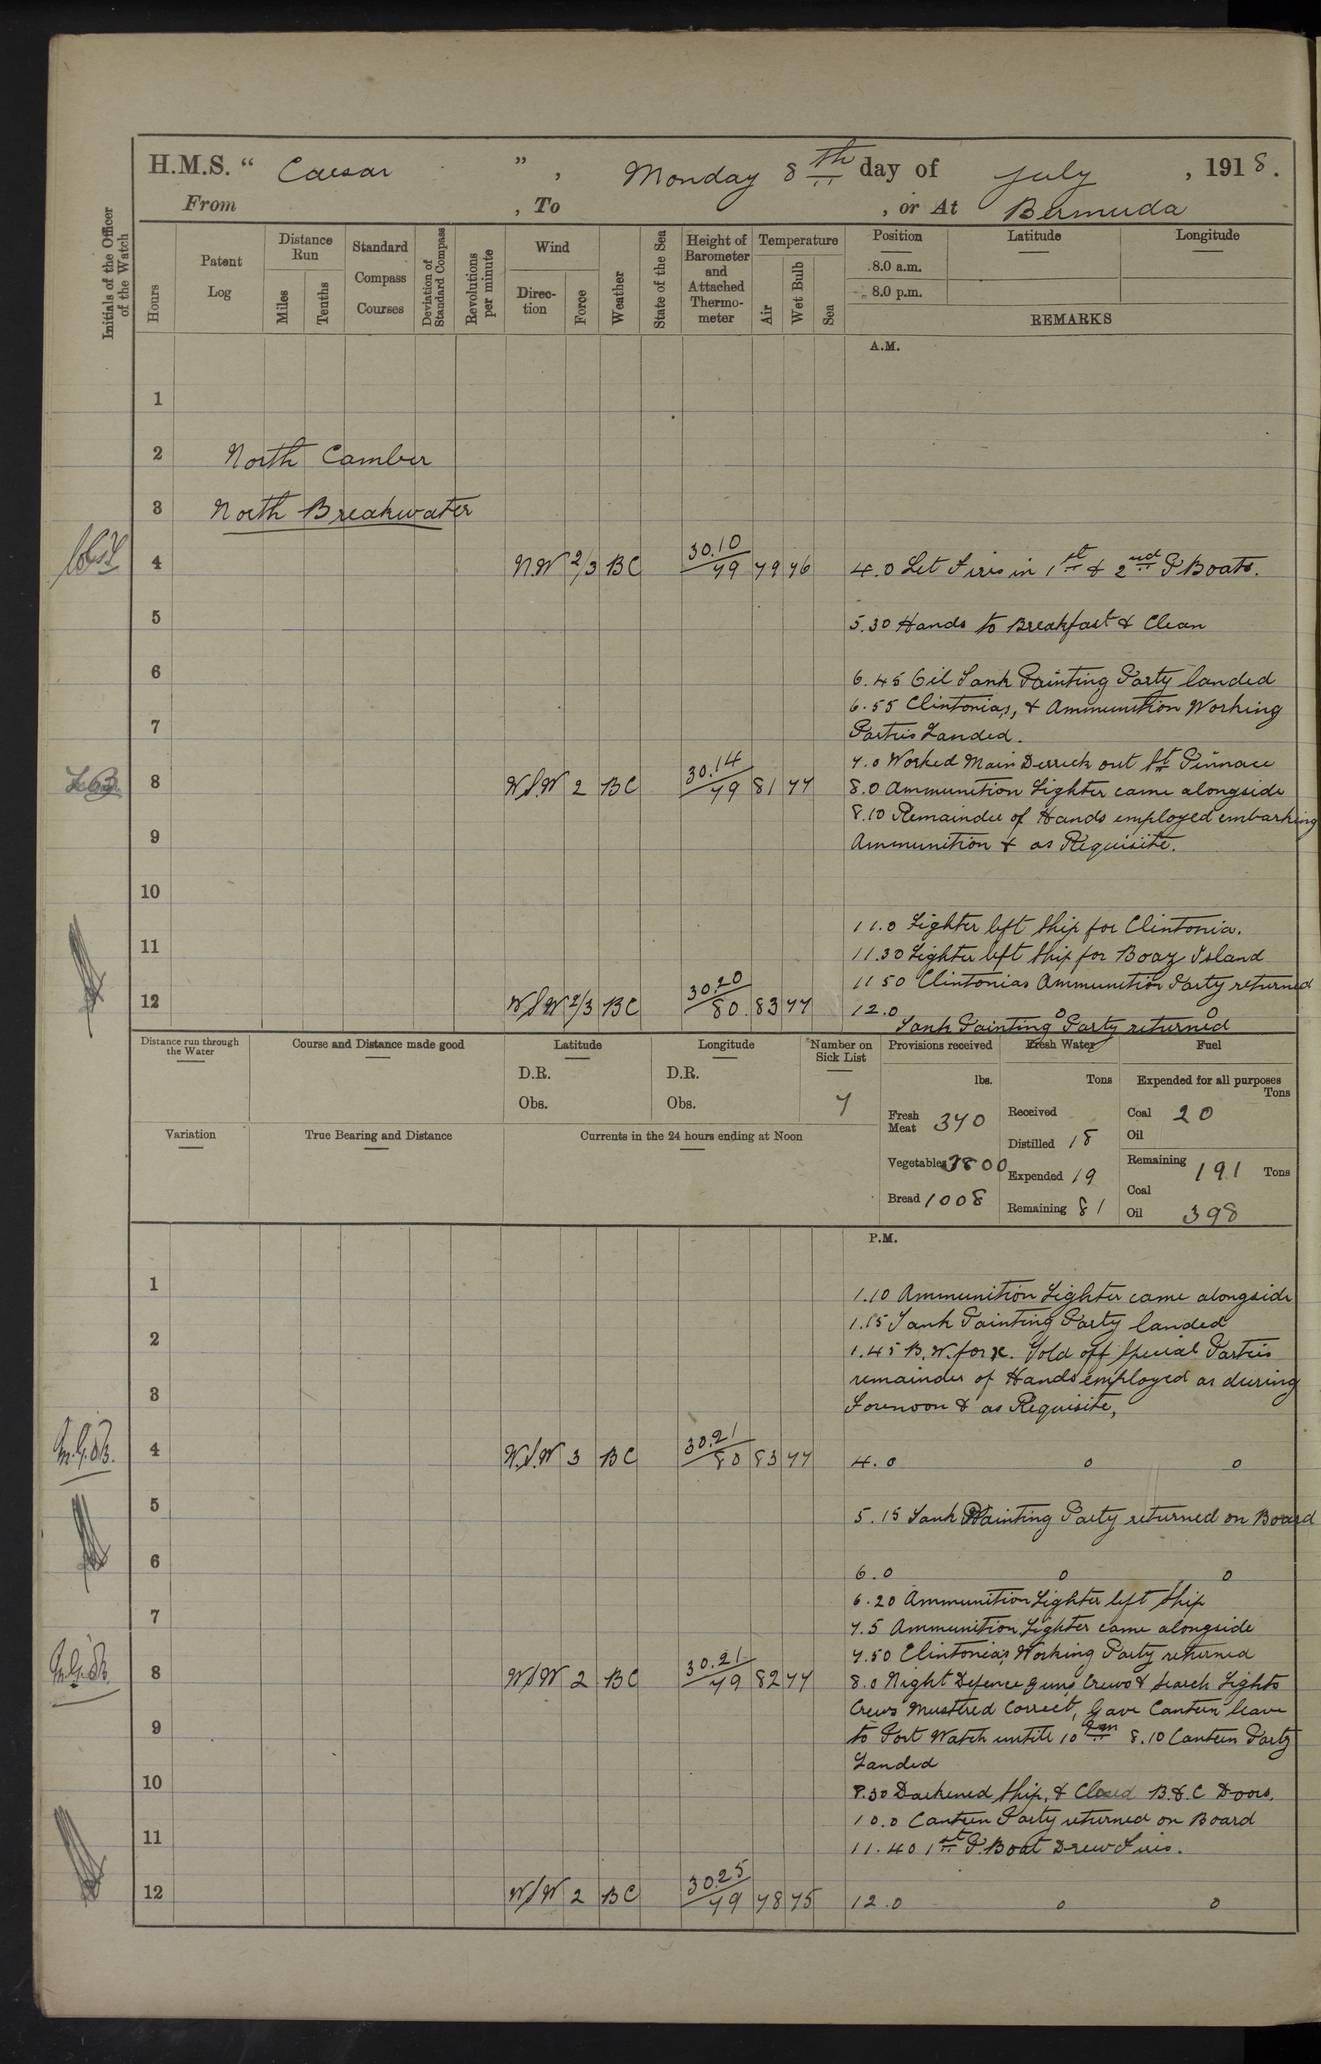 H.M.S. “ Caesar ” , Monday 8th day of July , 1918.
From , To , or At Bermuda
Initials of the Officer of the Watch
Hours
Patent Log
Distance Run
Miles
Tenths
Standard Compass Courses
Deviation of Standard Compass
Revolutions per minute
Wind
Direction
Force
Weather
State of the Sea
Height of Barometer and Attached Thermometer
Temperature
Air
Wet Bulb
Sea
Position Latitude Longitude
8.0 a.m.
8.0 p.m.
REMARKS
A.M.
1
2 North Camber
3 North Breakwater
4 N.W 2/3 BC 30.10/79 79 76 4.0 Let Fires in 1st & 2nd P Boats.
5 5.30 Hands to Breakfast & Clean
6 6.45 Oil Tank Painting Party landed
6.55 Clintonia's, & Ammunition Working
7 Parties Landed.
7.0 Worked Main Derrick out St Pinnace
8 WSW 2 BC 30.14/79 81 77 8.0 Ammunition Lighter came alongside
8.10 Remainder of Hands employed embarking
9 Ammunition & as Requisite.
10
11.0 Lighter left Ship for Clintonia.
11 11.30 Lighter left Ship for Boaz Island
11 50 Clintonias Ammunition Party returned
12 WSW 2/3 BC 30.20/80 83 77 12.0 o o
Tank Painting Party returned
Distance run through the Water
Course and Distance made good
Latitude
D.R.
Obs.
Longitude
D.R.
Obs.
Number on Sick List
7
Provisions received
lbs.
Fresh Meat 370
Vegetables 3800
Bread 1008
Fresh Water
Tons
Received
Distilled 18
Expended 19
Remaining 81
Fuel
Expended for all purposes
Tons
Coal 20
Oil
Remaining 191 Tons
Coal
Oil 398
Variation
True Bearing and Distance
Currents in the 24 hours ending at Noon
P.M.
1 1.10 Ammunition Lighter came alongside
1.15 Tank Painting Party landed
2 1.45 B.W. for x. Told off Special Parties
remainder of Hands employed as during
3 Forenoon & as Requisite,
M.G.B. 4 W.S.W 3 BC 30.21/80 83 77 4.0 o o
5 5.15 Tank Painting Party returned on Board
6 6.0 o o
6.20 Ammunition Lighter left Ship
7 7.5 Ammunition Lighter came alongside
7.50 Clintonia's Working Party returned
8 WSW 2 BC 30.21/79 82 77 8.0 Night Defence guns Crews & Search Lights
Crews Mustered Correct, Gave Canteen leave
9 to Port Watch until 10 pm 8.10 Canteen Party
Landed
10 8.30 Darkened Ship, & Closed B.&.C Doors.
10.0 Canteen Party returned on Board
11 11.40 1st P. Boat Drew Fires.
12 WSW 2 BC 30.25/79 78 75 12.0 o o